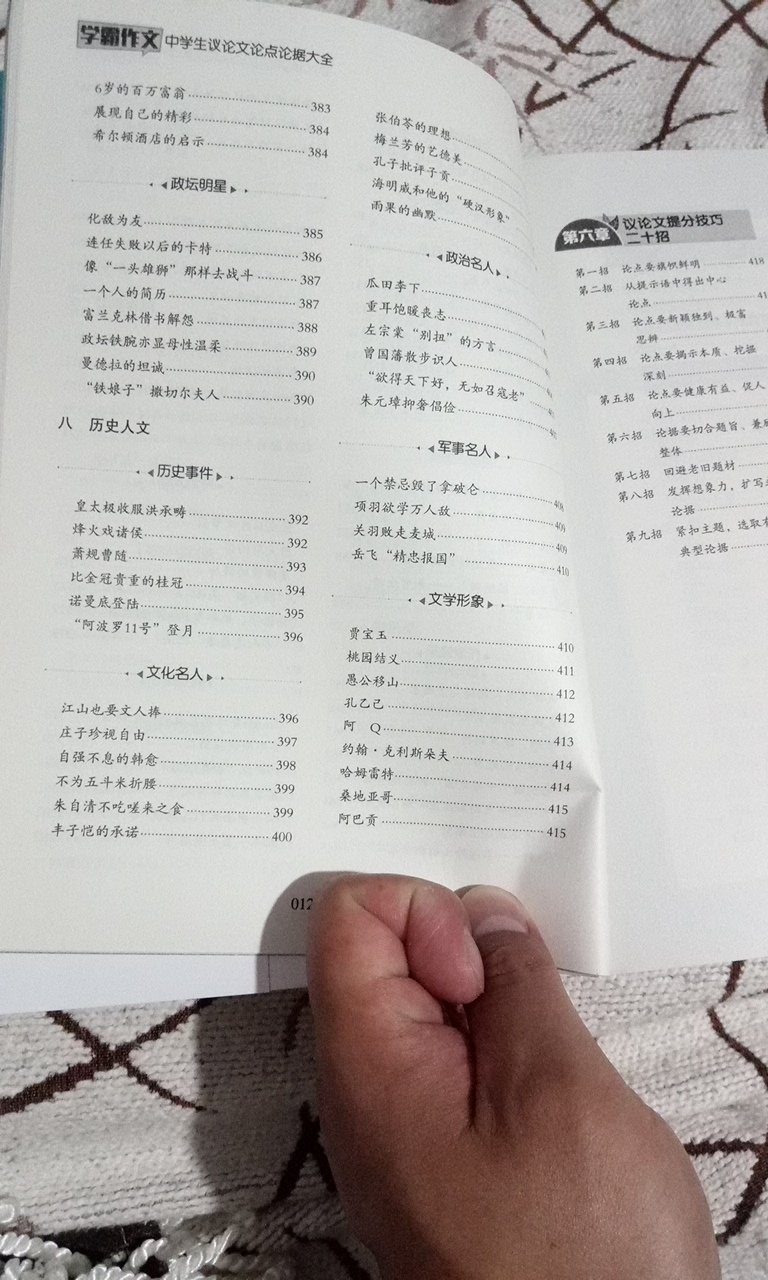 学霸作文 中学生议论文论点论据大全
6岁的百万富翁 383
展现自己的精彩 384
希尔顿酒店的启示 384
政坛明星
化敌为友 385
连任失败以后的卡特 386
像“一头雄狮”那样去战斗 387
一个人的简历 387
富兰克林借书解怨 388
政坛铁腕亦显母性温柔 389
曼德拉的坦诚 390
“铁娘子”撒切尔夫人 390
八 历史人文
历史事件
皇太极收服洪承畴 392
烽火戏诸侯 392
萧规曹随 393
比金冠贵重的桂冠 394
诺曼底登陆 395
“阿波罗11号”登月 396
文化名人
江山也要文人捧 396
庄子珍视自由 397
自强不息的韩愈 398
不为五斗米折腰 399
朱自清不吃嗟来之食 399
丰子恺的承诺 400
张伯苓的理想
梅兰芳的艺德美
孔子批评子贡
海明威和他的“硬汉形象”
雨果的幽默
政治名人
瓜田李下
重耳饱暖丧志
左宗棠“别扭”的方言
曾国藩散步识人
“欲得天下好，无如召寇老”
朱元璋抑奢倡俭
军事名人
一个禁忌毁了拿破仑 408
项羽欲学万人敌 409
关羽败走麦城 409
岳飞“精忠报国” 410
文学形象
贾宝玉 410
桃园结义 411
愚公移山 412
孔乙己 412
阿 Q 413
约翰·克利斯朵夫 414
哈姆雷特 414
桑地亚哥 415
阿巴贡 415
012
第六章 议论文提分技巧
二十招
第一招 论点要旗帜鲜明 418
第二招 从提示语中得出中心
论点
第三招 论点要新颖独到、极富
思辨
第四招 论点要揭示本质、挖掘
深刻
第五招 论点要健康有益、促人
向上
第六招 论据要切合题旨、兼顾
整体
第七招 回避老旧题材
第八招 发挥想象力，扩写
论据
第九招 紧扣主题，选取
典型论据